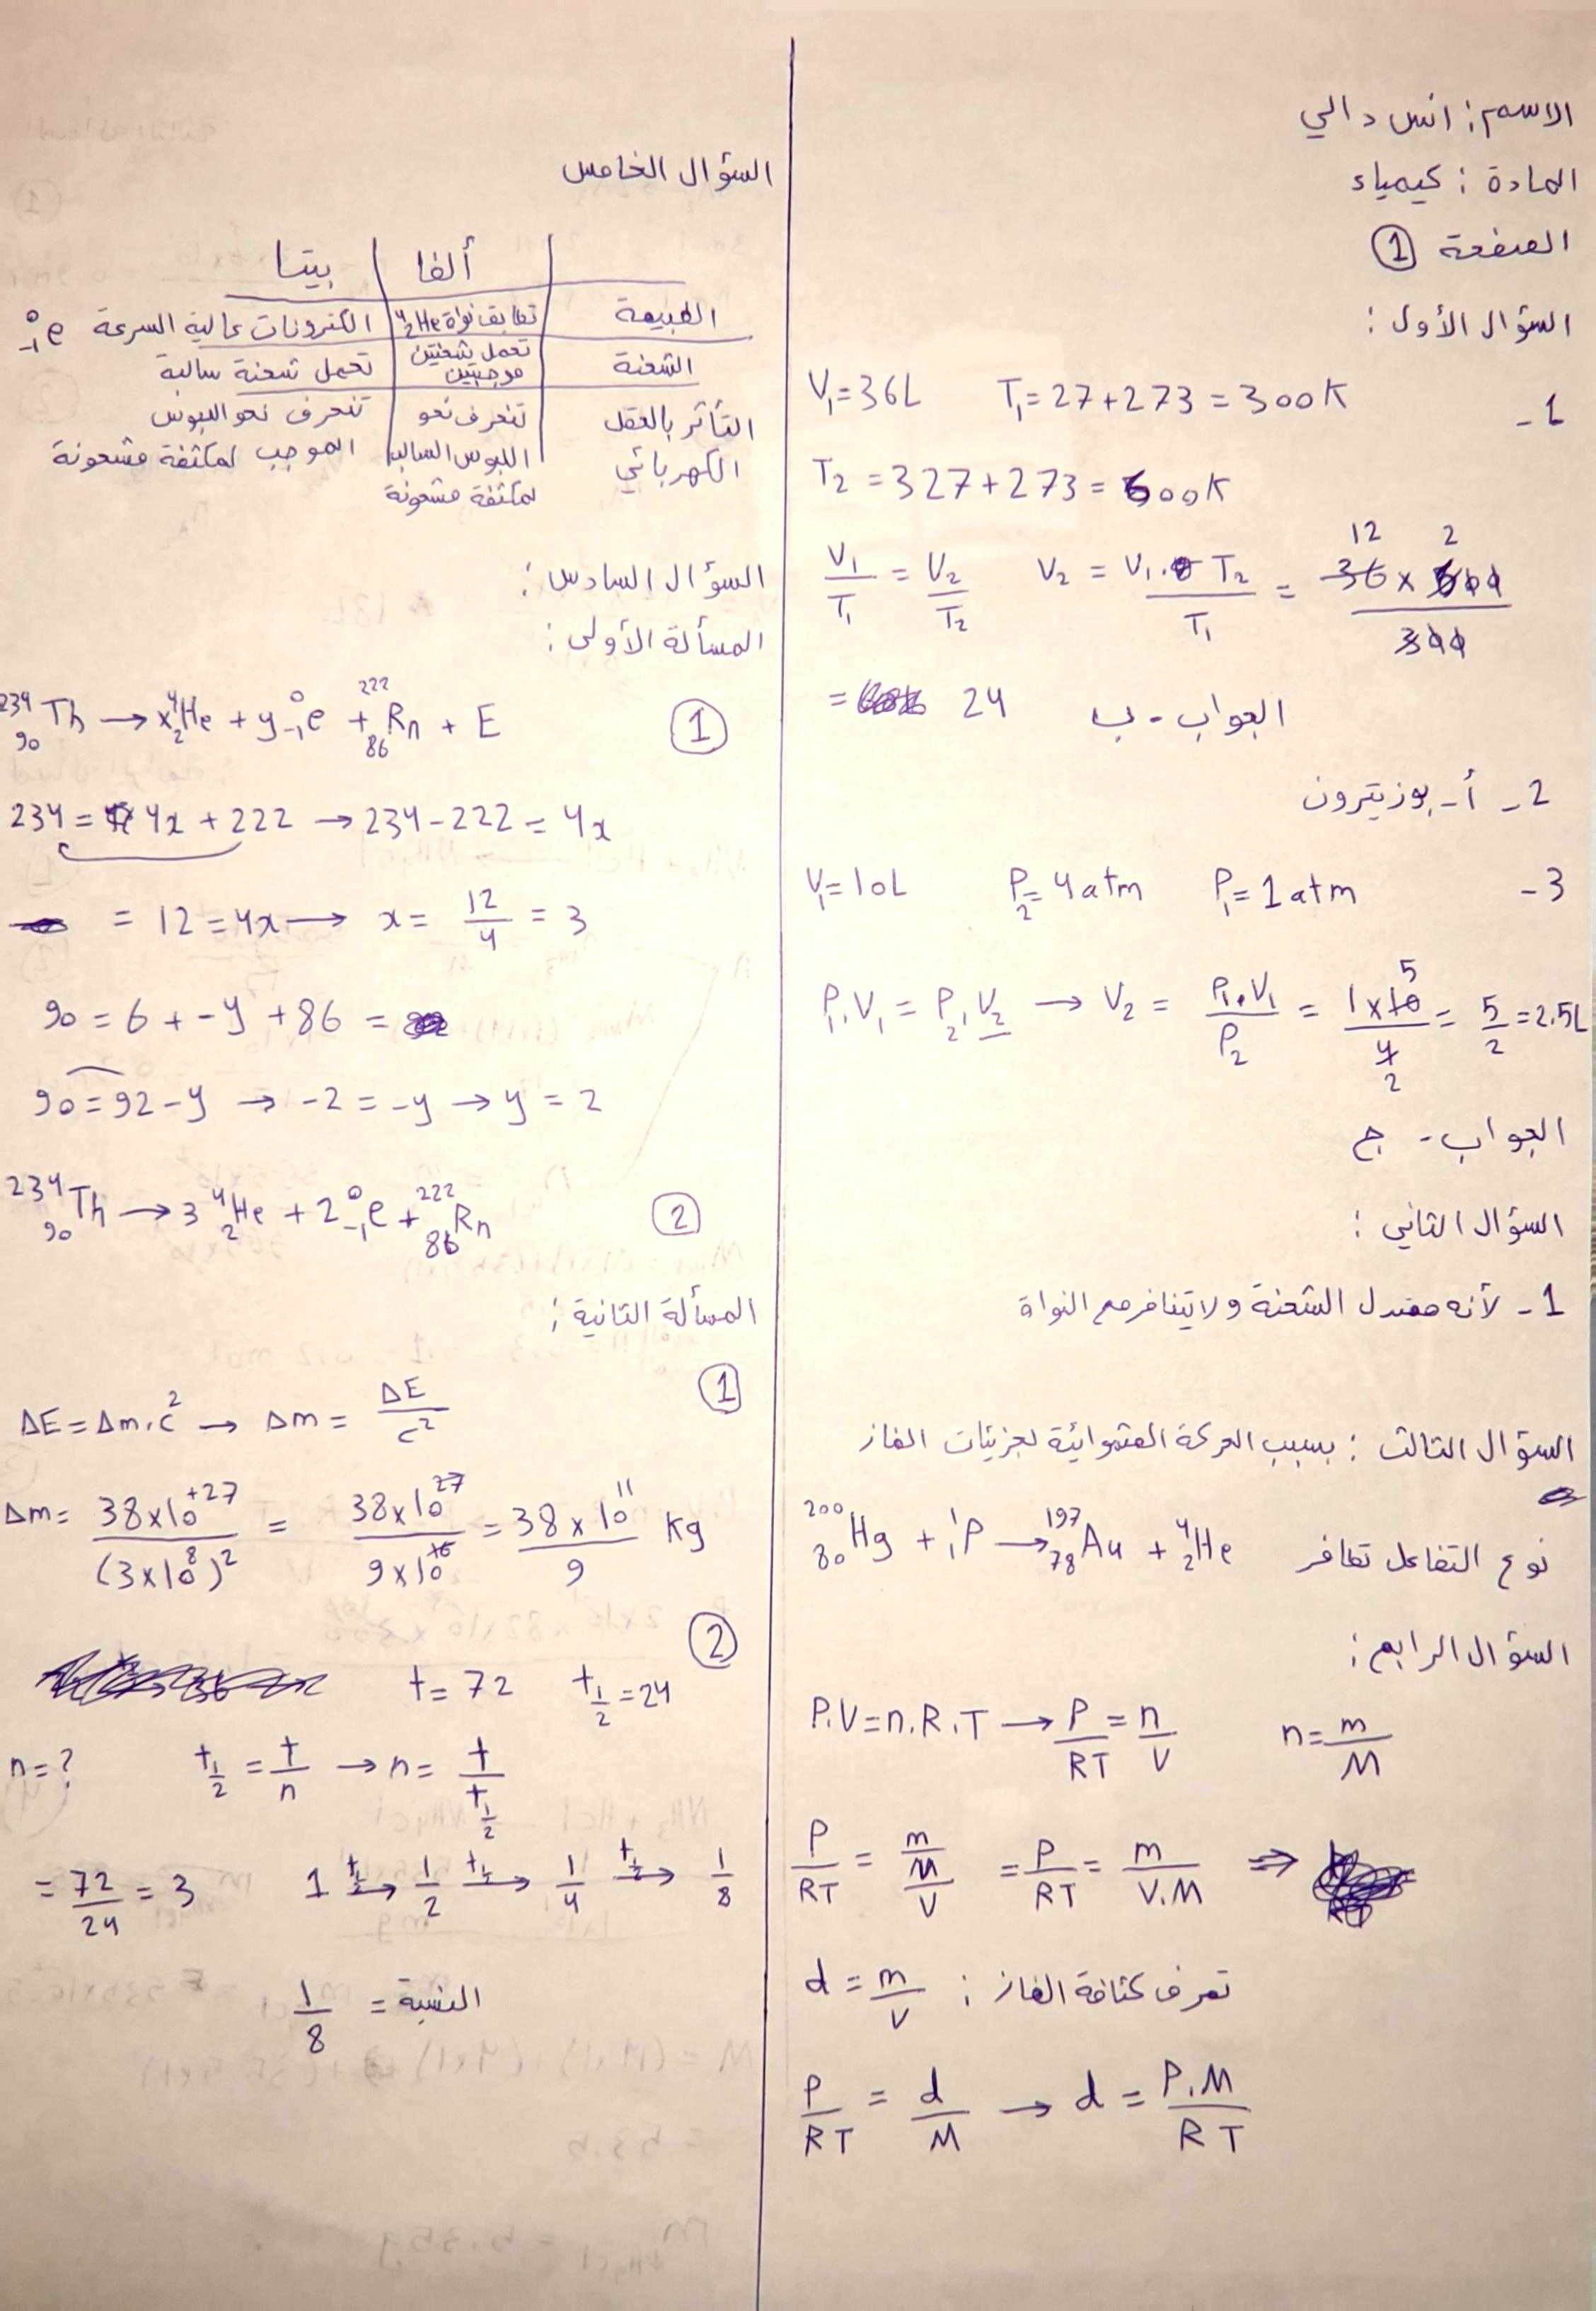 الاسم: انس دالي
المادة: كيمياء
الصفحة ①
السؤال الأول:
1- V₁=36L T₁=27+273=300K
T₂=327+273=600K
V₁/T₁ = V₂/T₂ V₂ = V₁.T₂/T₁ = 36×600/300 12 2
= 24 الجواب - ب
2- أ- بوزيترون
3- V₁=10L P₂=4atm P₁=1atm
P₁.V₁ = P₂.V₂ → V₂ = P₁.V₁/P₂ = 1×10/4 5 2 = 5/2 = 2.5L
الجواب - ج
السؤال الثاني:
1- لأنه معتدل الشحنة ولا يتنافر مع النواة
السؤال الثالث: بسبب الحركة العشوائية لجزيئات الغاز
²⁰⁰₈₀Hg + ¹₁P → ¹⁹⁷₇₈Au + ⁴₂He نوع التفاعل تطافر
السؤال الرابع:
P.V=n.R.T → P/RT = n/V n=m/M
P/RT = (m/M)/V = P/RT = m/V.M ⇒
تعرف كثافة الغاز: d = m/V
P/RT = d/M → d = P.M/RT
السؤال الخامس
ألفا بيتا
الطبيعة تطابق نواة ⁴₂He الكترونات عالية السرعة ⁰₋₁e
الشحنة تحمل شحنتين موجبتين تحمل شحنة سالبة
التأثر بالحقل الكهربائي تنحرف نحو اللبوس السالب لمكثفة مشحونة تنحرف نحو اللبوس الموجب لمكثفة مشحونة
السؤال السادس:
المسألة الأولى:
① ²³⁴₉₀Th → x⁴₂He + y⁰₋₁e + ²²²₈₆Rn + E
234 = 4x + 222 → 234-222 = 4x
= 12 = 4x → x = 12/4 = 3
90 = 6 + -y + 86 =
90 = 92-y → -2 = -y → y = 2
② ²³⁴₉₀Th → 3⁴₂He + 2⁰₋₁e + ²²²₈₆Rn
المسألة الثانية:
①
ΔE = Δm.c² → Δm = ΔE/c²
Δm = 38×10⁺²⁷/(3×10⁸)² = 38×10²⁷/9×10¹⁶ = 38×10¹¹/9 Kg
②
t = 72 t½ = 24
n = ? t½ = t/n → n = t/t½
= 72/24 = 3 1 →t½ 1/2 →t½ 1/4 →t½ 1/8
النسبة = 1/8